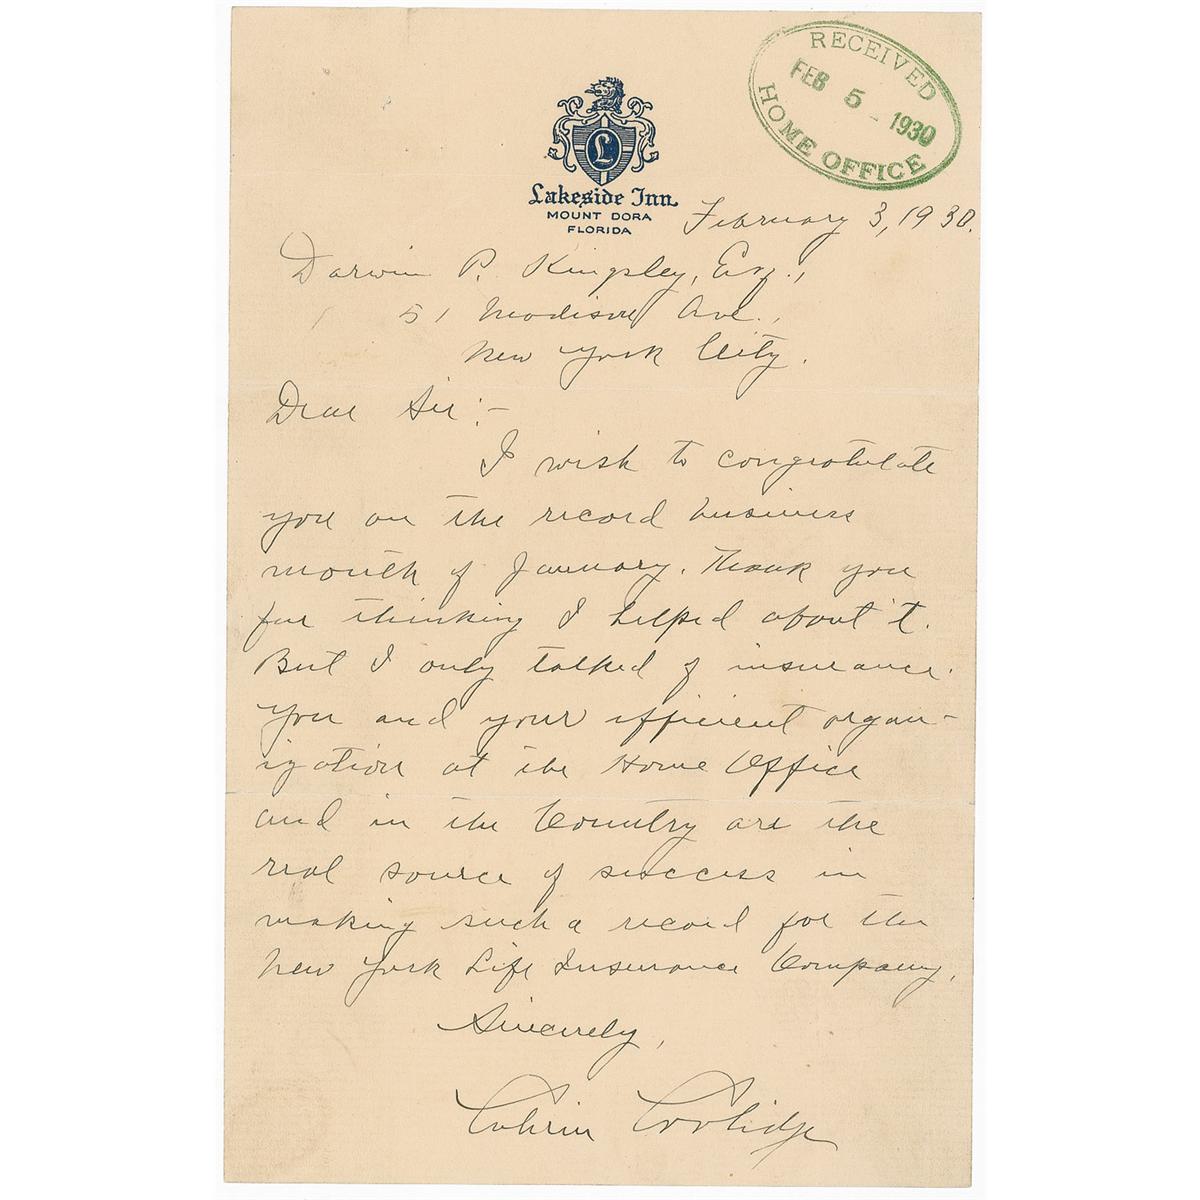 RECEIVED
FEB 5 - 1930
HOME OFFICE
L
Lakeside Inn
MOUNT DORA
FLORIDA
February 3, 1930.
Darwin P. Kingsley, Esq.,
51 Madison Ave.,
New York City.
Dear Sir:-
I wish to congratulate
you on the record business
month of January. Thank you
for thinking I helped about it.
But I only talked of insurance.
You and your efficient organ-
ization at the Home Office
and in the Country are the
real source of success in
making such a record for the
New York Life Insurance Company.
Sincerely,
Calvin Coolidge